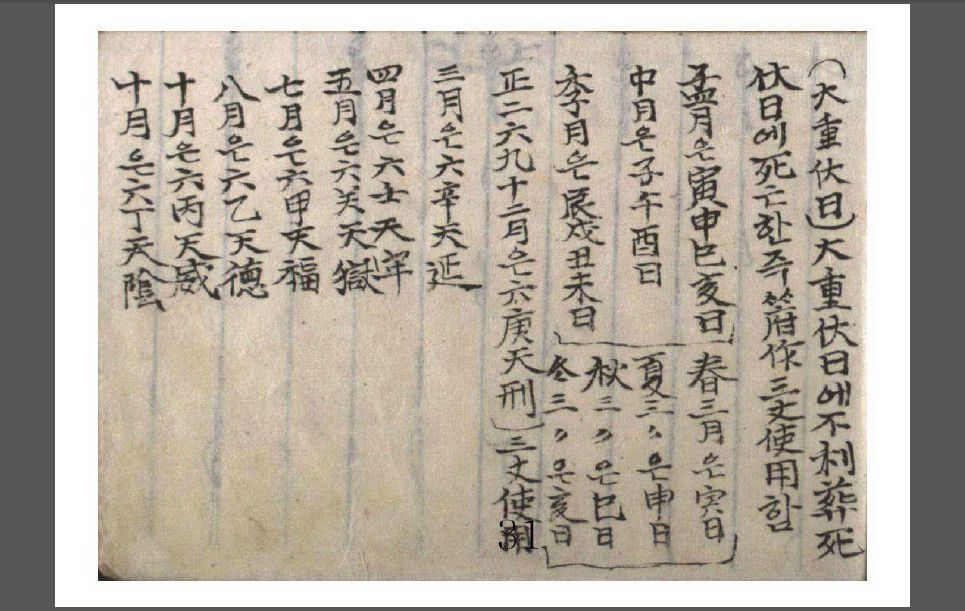 (大重伏日)大重伏日에不利葬死
伏日에死亡한즉符作三丈使用함
孟月은寅申巳亥日
中月은子午酉日
季月은辰戌丑未日
春三月은寅日
夏三〃은申日
秋三〃은巳日
冬三〃은亥日
正二六九十二月은六庚天刑
三丈使用
三月은六辛天延
四月은六士天牢
五月은六关天獄
七月은六甲天福
八月은六乙天德
十月은六丙天威
十月은六丁天陰
31